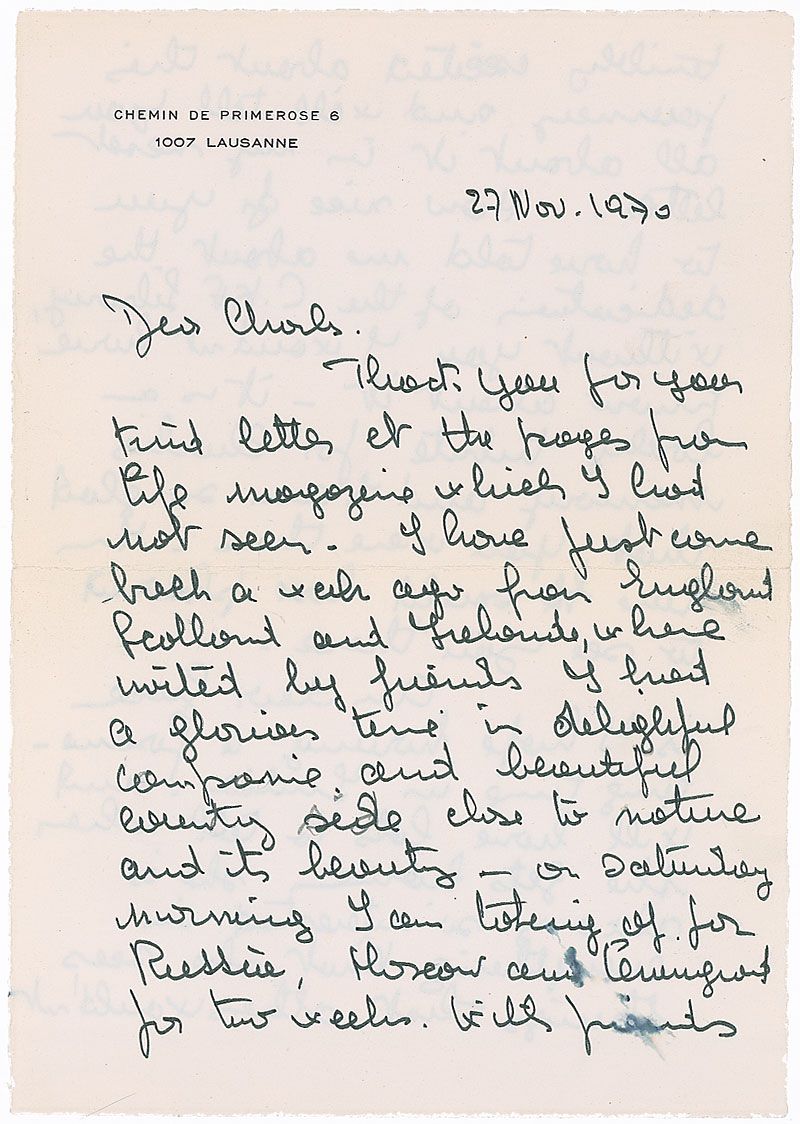 CHEMIN DE PRIMEROSE 6
1007 LAUSANNE
27 Nov. 1970
Dear Charles.
Thank you for your
kind letter et the pages from
Life magazine which I had
not seen. I have just come
back a week ago from England
Scotland and Irelande, where
invited by friends I had
a glorious time in delightful
companie and beautiful
country side close to nature
and its beauty — on Saturday
morning I am taking of for
Russia, Moscow and Leningrad
for two weeks. With friends